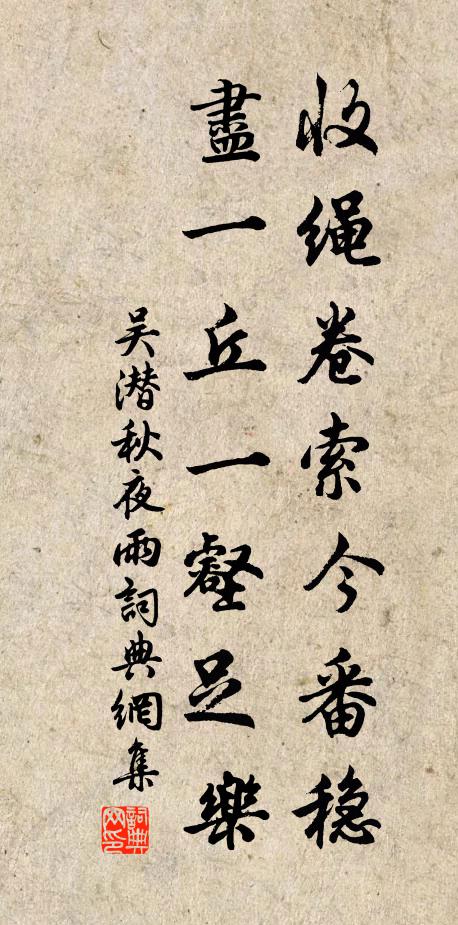 收绳卷索今番稳
盡一丘一壑足樂
吴潜秋夜雨詞典網集
詞典網印